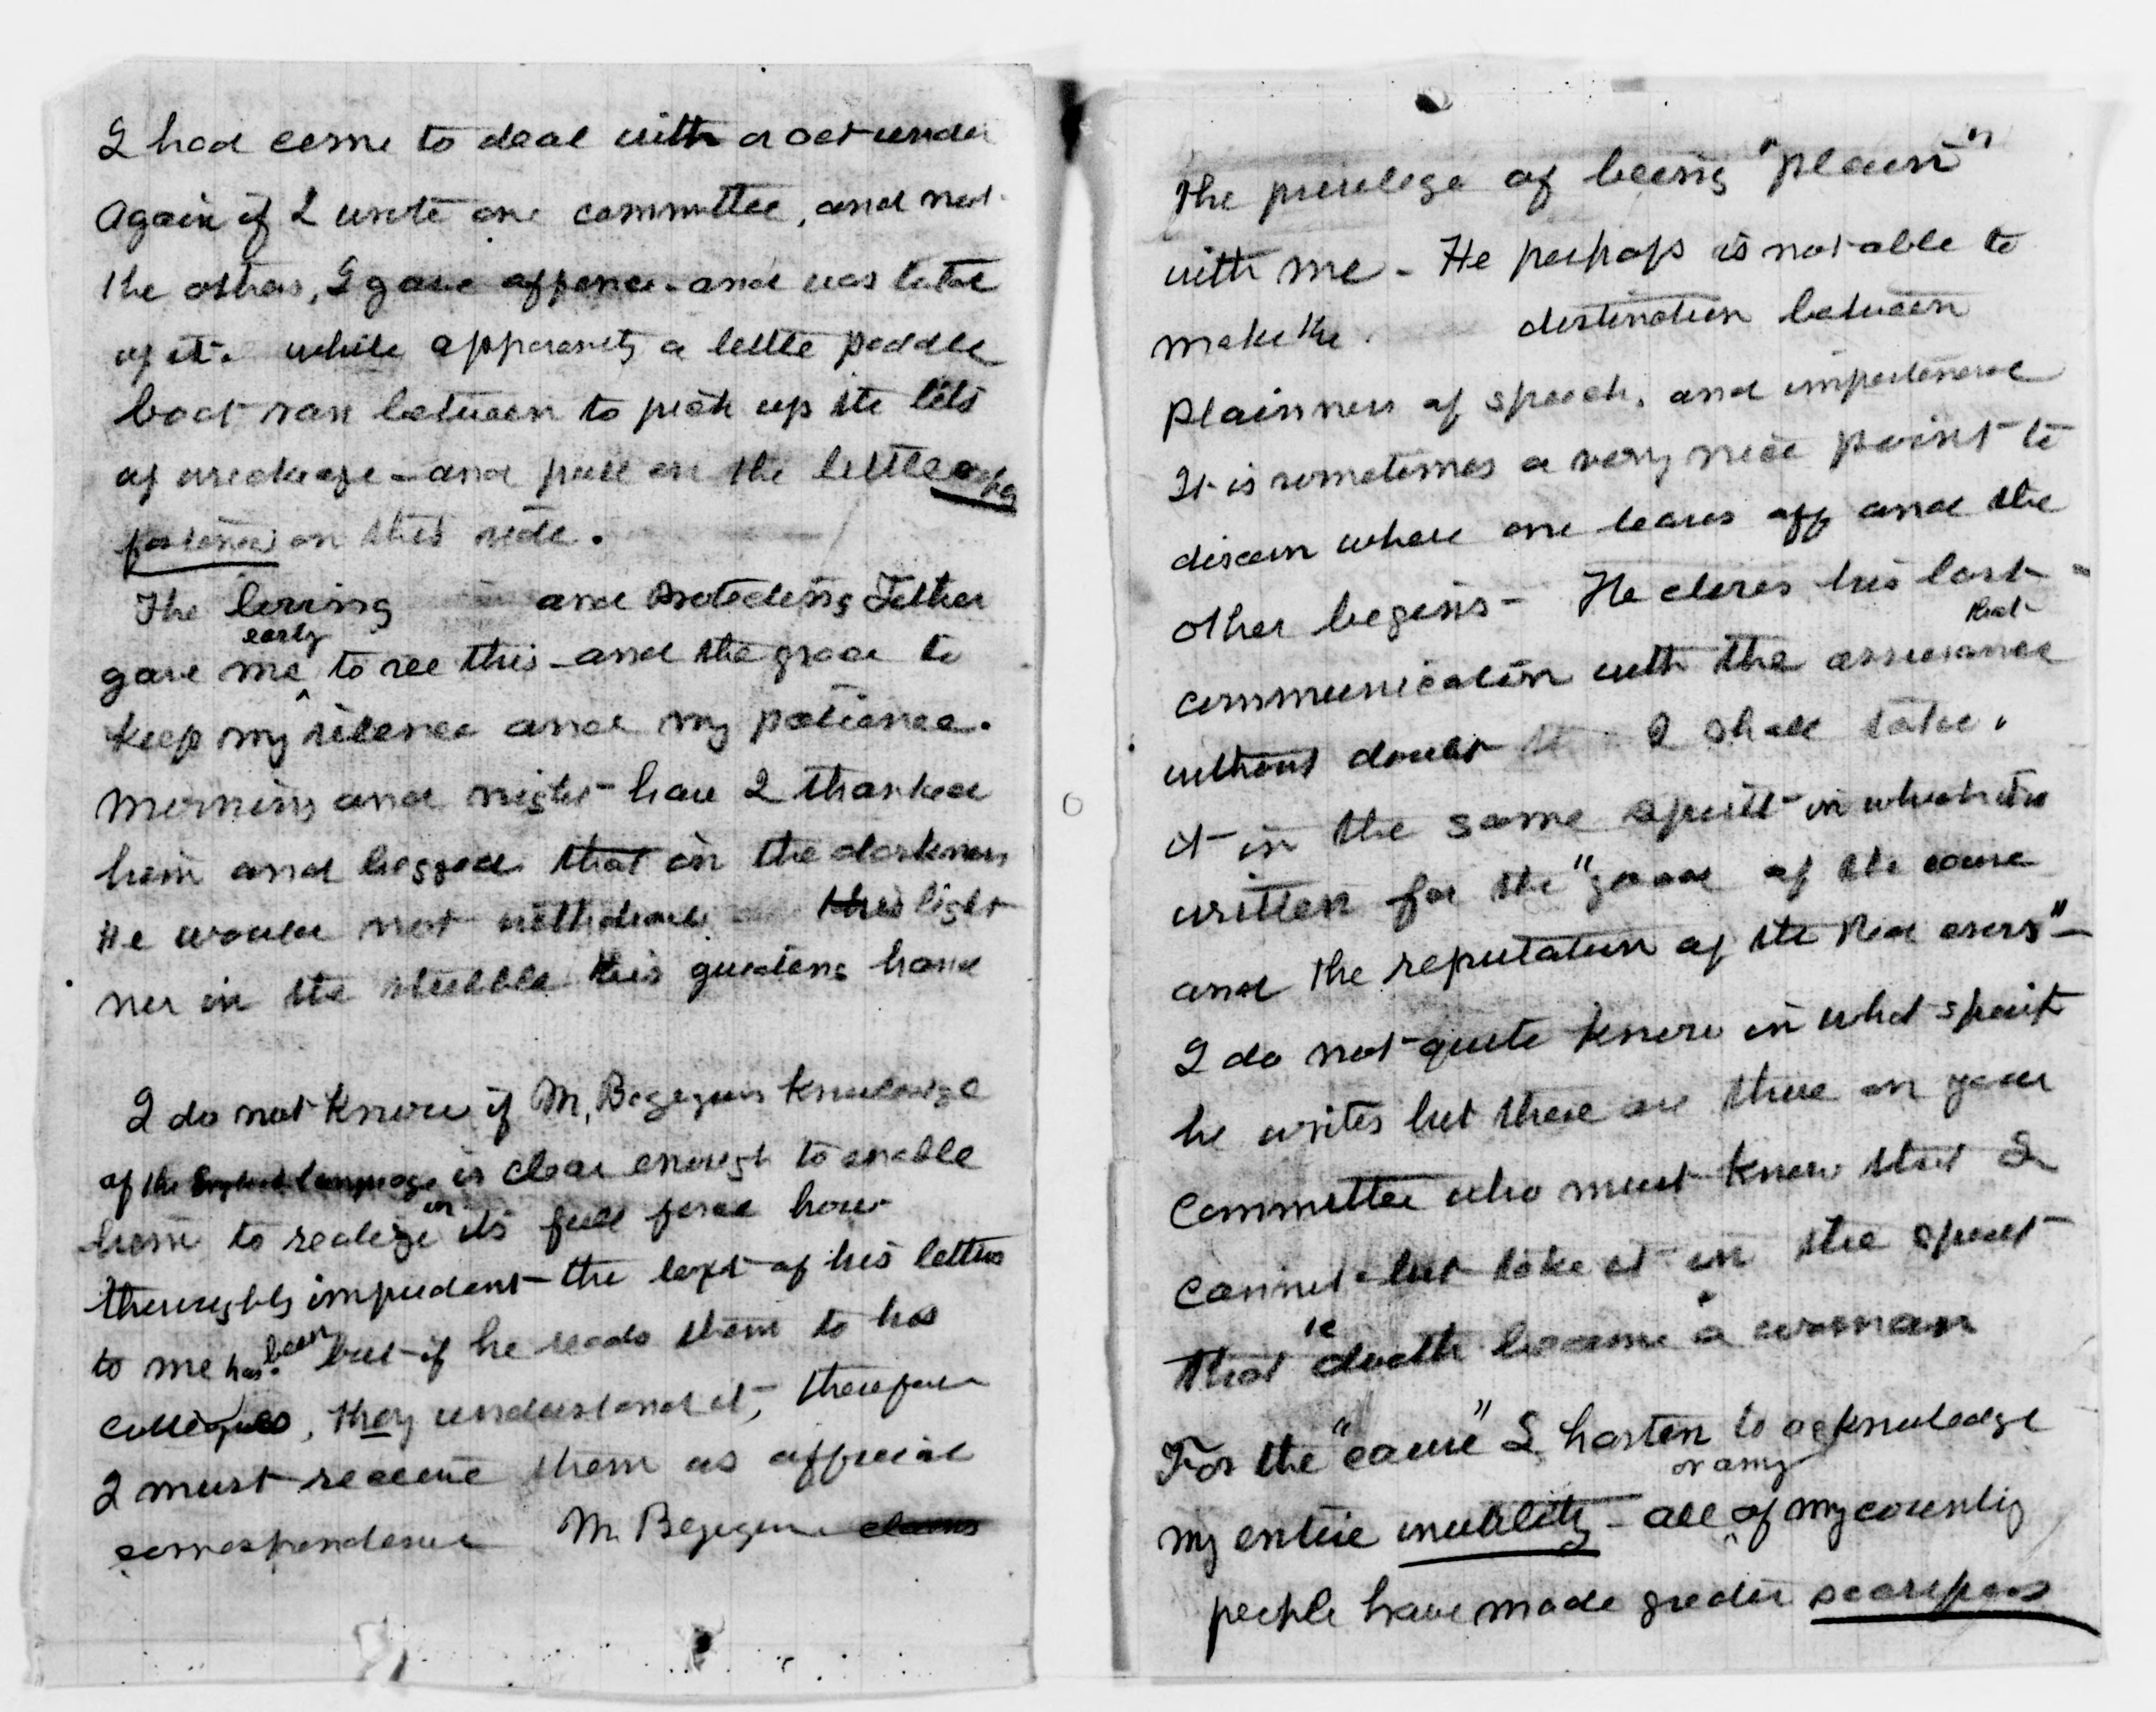 I had come to deal with a set under
Again if I wrote one committee, and not
the others, I gave offence - and was told
of it. while apparently a little paddle
boat ran between to pick up the bits
of wreckage - and pull on the little
fastened on this side.
The loving and protecting Father
gave me early to see this - and the grace to
keep my silence and my patience.
Morning and night have I thanked
him and begged that in the darkness
He would not withdraw this light
nor in the stubble this guiding hand
I do not know if M. Begeguin knowledge
of the English language is clear enough to enable
him to realize in its full force how
thoroughly impudent the text of his letters
to me has been but if he reads them to his
colleagues, they understand it, therefore
I must receive them as official
correspondence M. Begeguin claims
the privilege of being "plain"
with me - He perhaps is not able to
make the distinction between
plainness of speech, and impertinence
It is sometimes a very nice point to
discern where one leaves off and the
other begins - He closes his last
communication with the assurance that
without doubt I shall take
it in the same spirit in which it is
written for the "good of the cause
and the reputation of the Red cross" -
I do not quite know in what spirit
he writes but there are those on your
committee who must know that I
cannot but take it in the spirit
that doth become a woman
For the "cause" I hasten to acknowledge
my entire inutility - all or any of my country
people have made greater